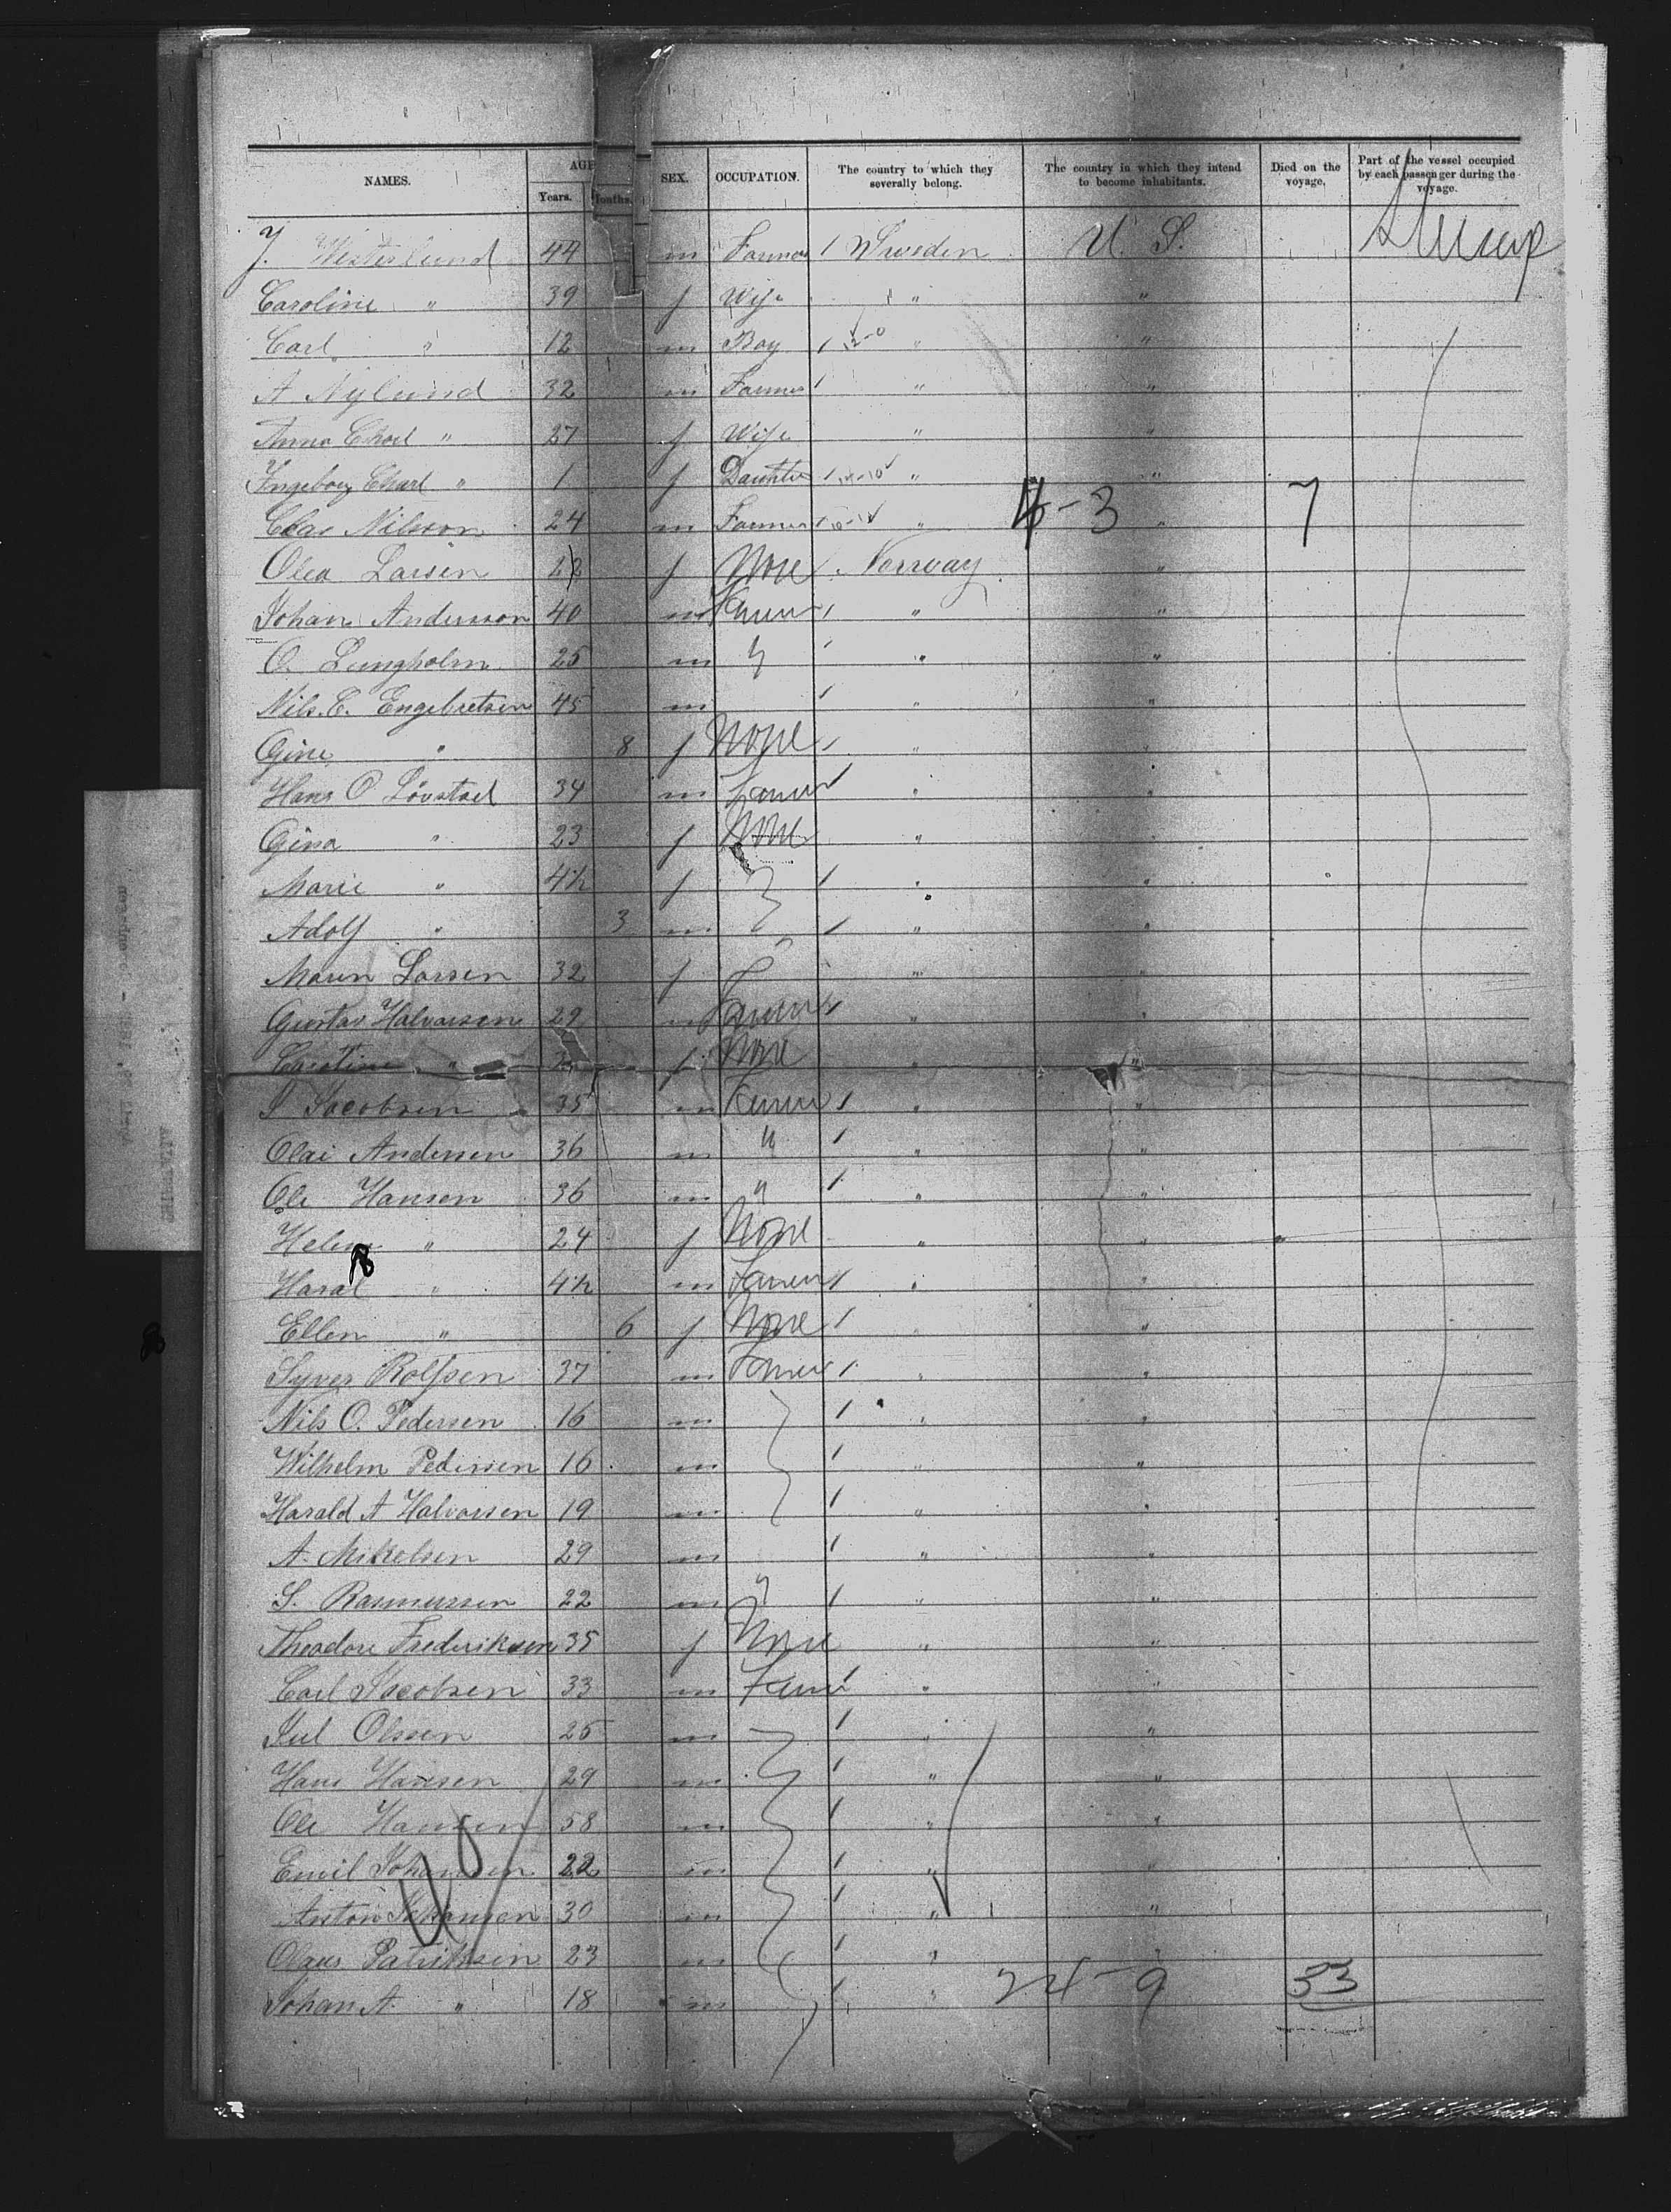 NAMES. AGE Years. Months. SEX. OCCUPATION. The country to which they severally belong. The country in which they intend to become inhabitants. Died on the voyage. Part of the vessel occupied by each passenger during the voyage.
J. Westerlund 44 m Farmer / Sweden U. S.
Caroline " 39 f Wife " "
Carl " 12 m Boy / " "
A Nylund 32 m Farmer / " "
Anna " 27 f Wife " "
Ingeborg " 1 f Daughter / " "
Claes Nilsson 24 m Farmer / " 4-3 " 7
Olea Larsen f None Norway "
Johan Andersson 40 m Farmer / " "
O. Lungholm 25 m " / " "
Nils. E. Engebretsen 45 m / " "
Gine " 8 f None / " "
Hans O Lövstad 34 m Farmer / " "
Gina " 23 f None " "
Marie " 4½ f / " "
Adolf " 3 m / " "
Maren Larsen 32 f " "
Gustav Halvorsen 29 m Farmer / " "
" f None " "
Jacobsen 35 m Farmer / " "
Olai Andersen 36 m " / " "
Ole Hansen 36 m " / " "
Helene " 24 f None " "
Haral " 4½ m Farmer / " "
Ellen " 6 f None / " "
Syver Rolfsen 37 m Farmer / " "
Nils O. Pedersen 16 m / " "
Wilhelm Pedersen 16 m / " "
Harald A Halvorsen 19 m / " "
A. Mikelsen 29 m / " "
S. Rasmussen 22 m " / " "
Theodore Frederiksen 35 f None " "
Carl Jacobsen 33 m Farmer / " "
Jul Olsson 25 m / " "
Hans Hansen 29 m / " "
Ole Hansen 58 m / " "
Emil Johansen 22 m / " "
Anton Johansen 30 m / " "
Olaus Patriksen 23 m / " "
Johan A. " 18 m / " 24-9 33